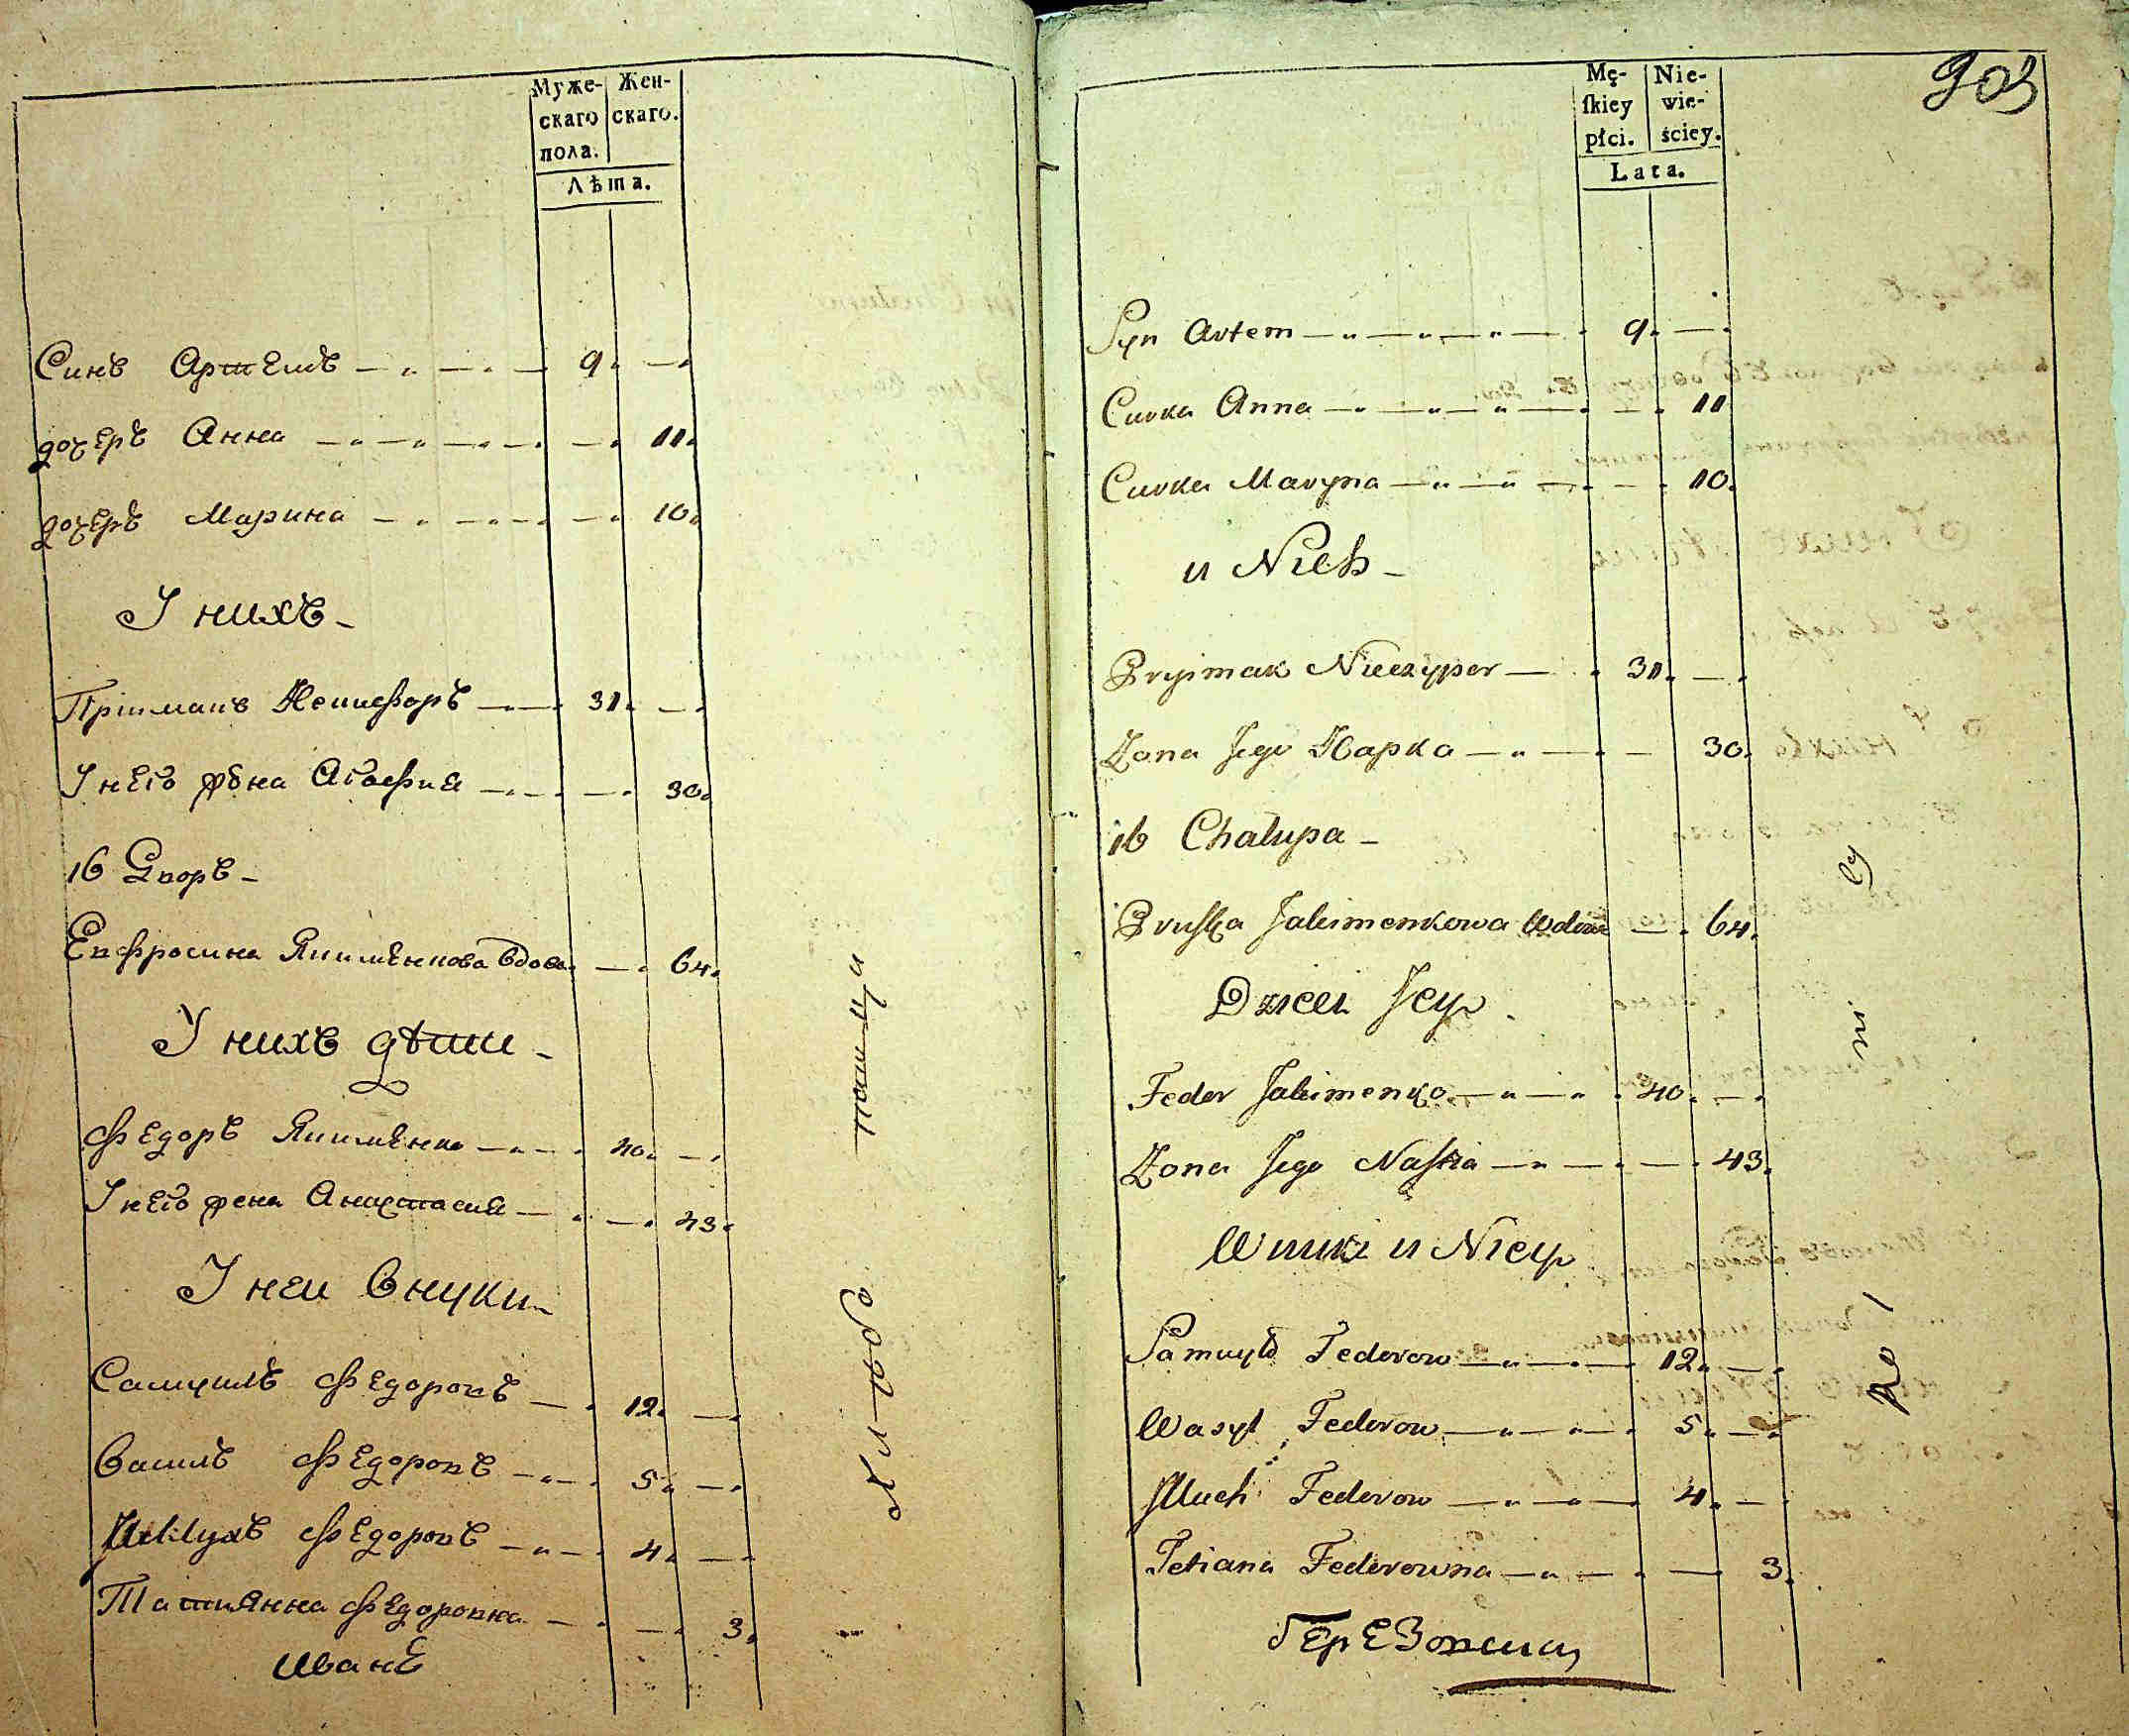 Муже- Жен-
скаго скаго.
пола.
Лѣта.
Синъ Артемъ 9.
дочеръ Анна 11.
дочеръ Марина 10.
У нихъ
Пріимакъ Нечипоръ 31.
У него жена Агафия 30.
16 Дворъ
Евфросина Якименкова вдова 64.
У нихъ дѣти
Федоръ Якименко 40.
У него жена Анастасия 43.
У неи внуки
Самуилъ Федоровъ 12.
Василь Федоровъ 5.
Федоровъ 4.
Татиянна Федоровна 3.
Иване
903
Mę- Nie-
ſkiey wie-
płci. ściey.
Lata.
Syn Artem 9.
Curka Anna 11
Curka Maryna 10.
u Nich
Pryimak Nieczypor 31.
Zona Jego 30.
16 Chalupa
Pruska Jakimenkowa Wdowa 64.
Dzieci Jey
Feder Jakimenko 40.
Zona Jego Nastia 43.
Wnuki u Niey
Samuyło Fedorow 12.
Wasyl Fedorow 5.
Fedorow 4.
Tetiana Fedorowna 3.